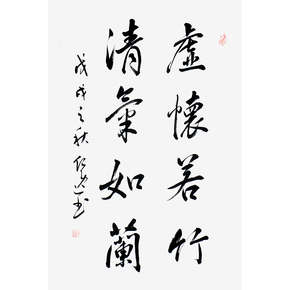 虛懷若竹
清氣如蘭
戊戌之秋